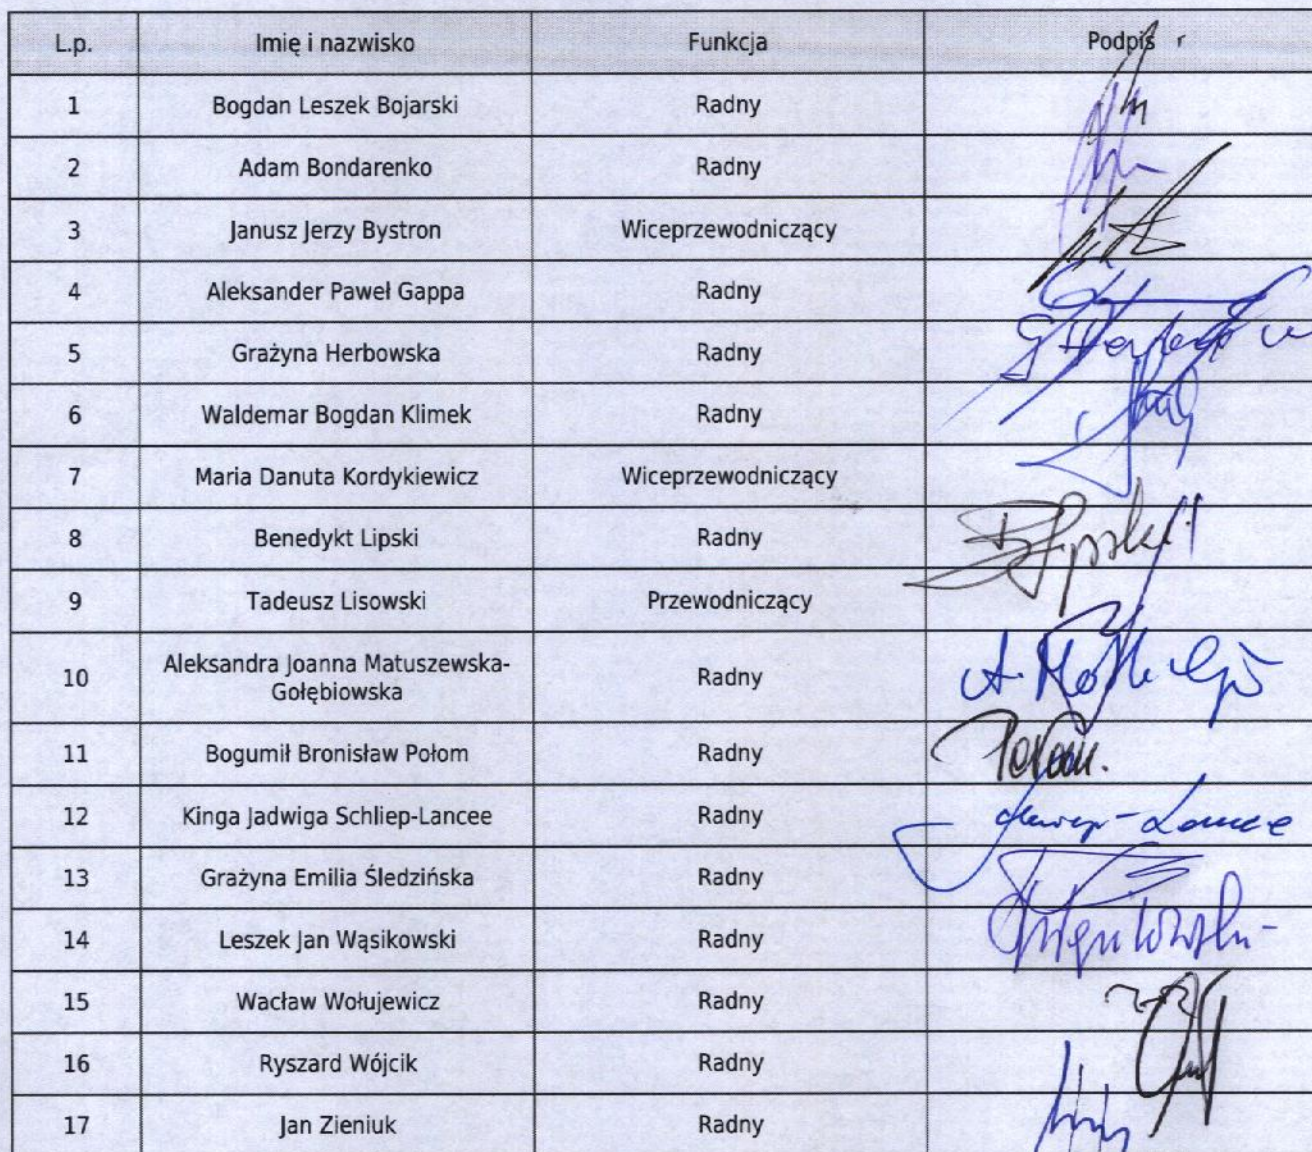 L.p. Imię i nazwisko Funkcja Podpis
1 Bogdan Leszek Bojarski Radny
2 Adam Bondarenko Radny
3 Janusz Jerzy Bystron Wiceprzewodniczący
4 Aleksander Paweł Gappa Radny
5 Grażyna Herbowska Radny
6 Waldemar Bogdan Klimek Radny
7 Maria Danuta Kordykiewicz Wiceprzewodniczący
8 Benedykt Lipski Radny
9 Tadeusz Lisowski Przewodniczący
Aleksandra Joanna Matuszewska-
10 Gołębiowska Radny
11 Bogumił Bronisław Połom Radny
12 Kinga Jadwiga Schliep-Lancee Radny
13 Grażyna Emilia Śledzińska Radny
14 Leszek Jan Wąsikowski Radny
15 Wacław Wołujewicz Radny
16 Ryszard Wójcik Radny
17 Jan Zieniuk Radny